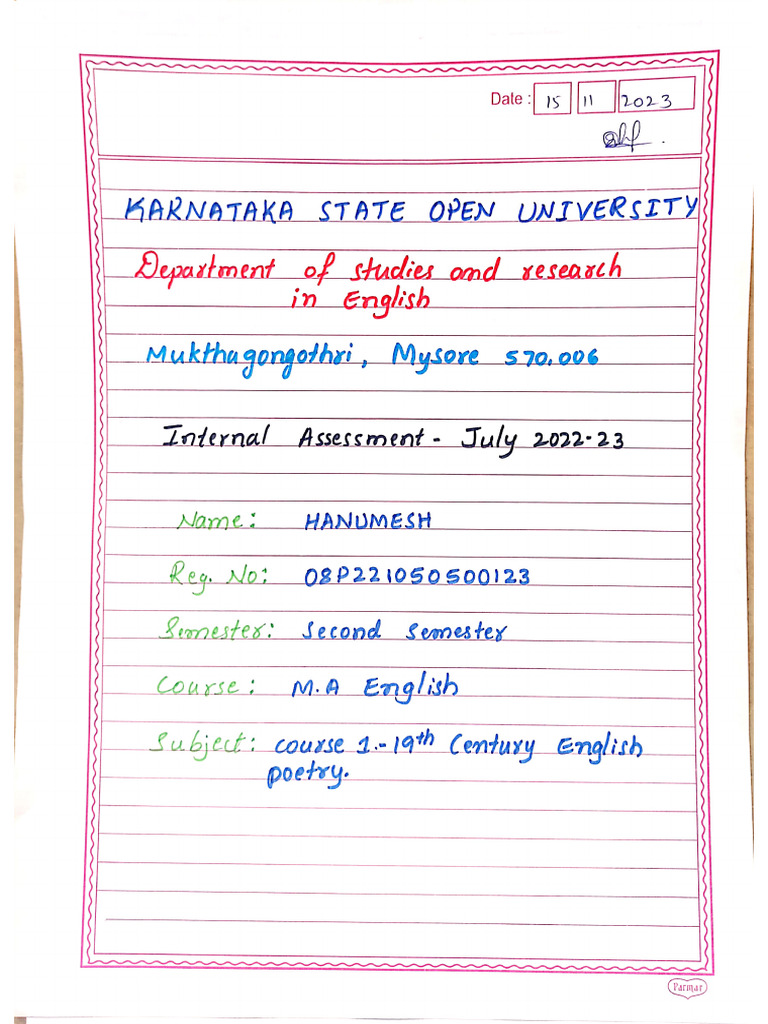 Date : 15 11 2023
KARNATAKA STATE OPEN UNIVERSITY
Department of studies and research
in English
Mukthagongothri, Mysore 570.006
Internal Assessment - July 2022-23
Name: HANUMESH
Reg. No: 08P221050500123
Semester: Second Semester
Course: M.A English
Subject: course 1.-19th Century English
poetry.
Parmar